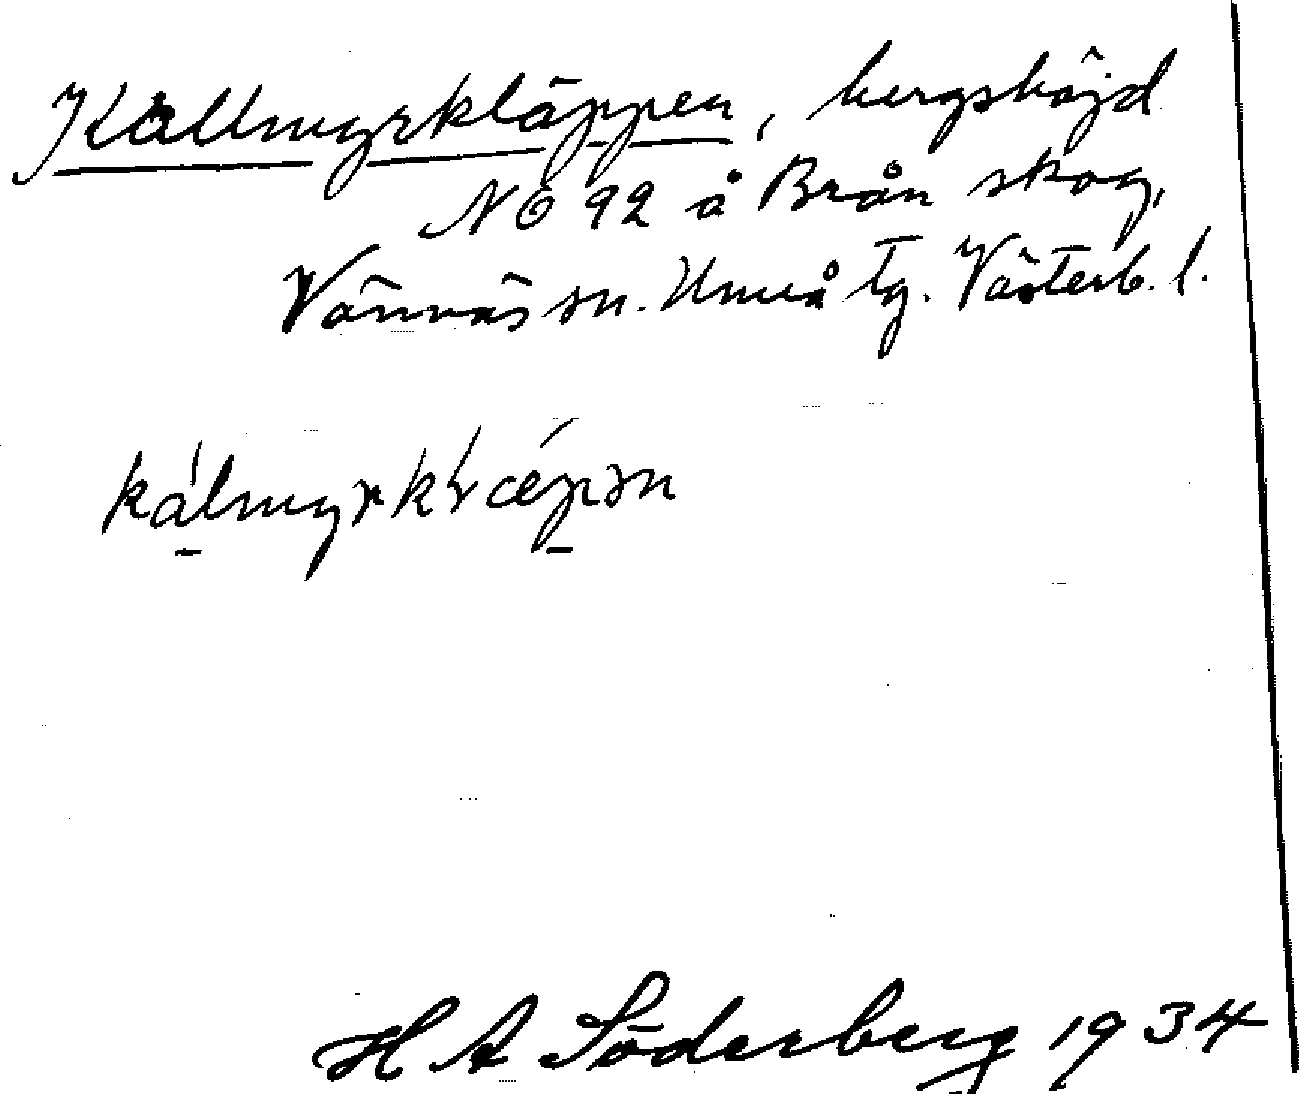 Kallmyrkläppen, bergshöjd
NO 92 å Brån skog,
Vännäs sn. Umeå tg. Västerb. l.
H A Söderberg 1934